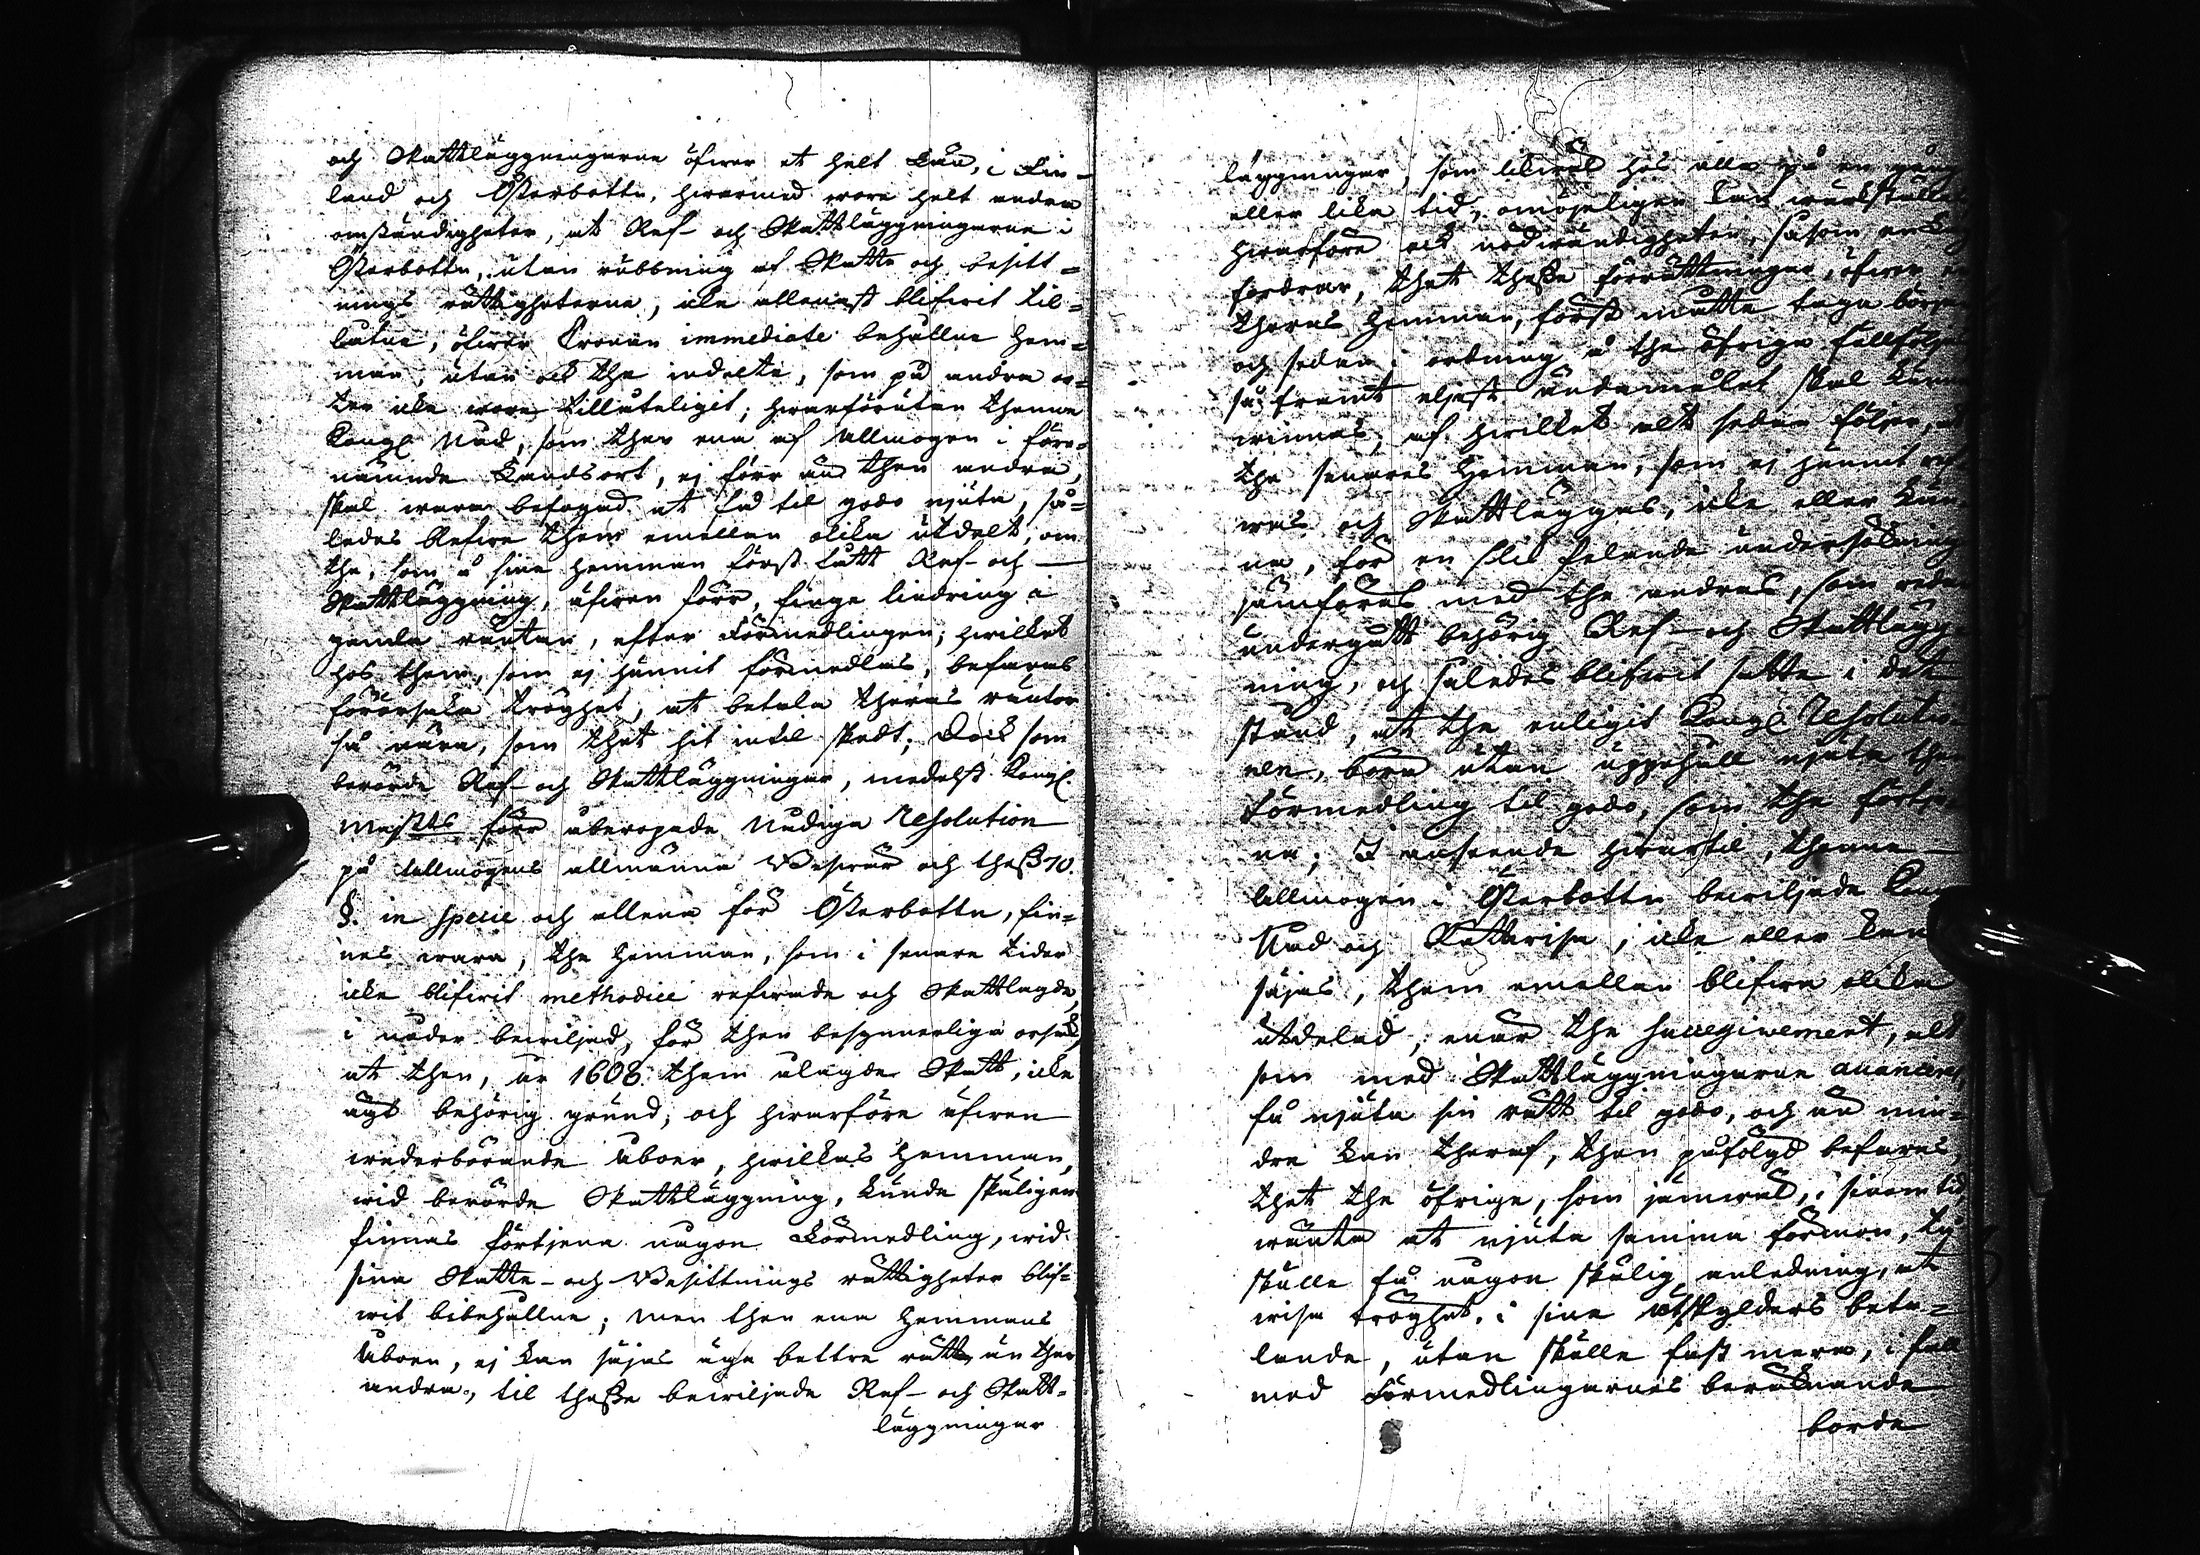 och Skattläggningarne öfwer et helt Län, i Fin-
land och Österbottn, hwarmed wore helt andra
omständigheter, at Ref- och Skattläggningarne i
Österbottn, utan rubbning af Skatte och besitt=
nings rättigheterne, icke allenast blifwit til=
låtne, öfwer Cronan immediate behållne hem=
man, utan ock the indelte, som på andra or=
ter icke wore tillåteligit; hwarförutan thenne
Kongl Nåd, som ther ena af Allmogen i före=
nämnde Landsort, ej förr än then andra,
skal wara befogad at få til godo njuta, så=
ledes blefwe them emellan olika utdelt, om
the, som å sine hemman först fått Ref- och
Skattläggning, äfwen förr, finge lindring i
gamla räntan, efter Förmedlingen; hwilket
hos them, som ej hunnit förmedlas, befaras
förorsaka tröghet, at betala theras räntor
så nära, som thet hit intil skedt; Dock som
berörde Ref- och Skattläggningar, medelst Kongl.
Majtts förr åberopade Nådiga Resolution
på Allmogens allmänna Beswär och thess 70.
§. in specie och allena för Österbottn, fin=
nes wara, the hemman, som i senare tider
icke blifwit methodice refwade och Skattlagde,
i nåder bewiljad, för then besynnerliga orsak,
at then, år 1608 them ålagde Skatt, icke
ägt behörig grund, och hwarföre äfwen
wederbörande Åboer, hwilkas hemman,
wid berörde Skattläggning, kunde skäligen
finnas förtjena någon Förmedling, wid
sina Skatte- och Besittnings rättigheter blif=
wit bibehållne; men then ena hemmans
Åboen, ej kan säjas äga bettre rätt, än then
andra, til thesse bewiljade Ref- och Skatt-
läggningar
läggningar, som likwäl hos alla på en gång
eller lika tid, omöjeligen kan werkställas
hwarföre ock nödwändigheten, såsom en
fordrar, thet thesse förrättningar, öfwer
theras hemman, först måtte taga början
och sedan i ordning å the öfriga fullföljas
så framt eljest ändamålet skal kunna
winnas, af hwilket alt sedan följer, at
the senares hemman, som ej hunnit ref=
was och Skattläggas, icke eller kun=
na, för en slik felande undersökning
jämföras med the andras, som redan
undergått behörig Ref- och Skattlägg=
ning, och således blifwit satte i det
stånd, at the enligit Kongl Resolutio=
nen, böra utan uppehåll njuta then
Förmedling til godo, som the förtje=
na; I anseende hwartil, thenne
Allmogen i Österbottn bewiljade Kongl
Nåd och Rättwisa, icke eller kan
säjas, them emellan blifwa olika
utdelad, enär the successivement, alt
som med Skattläggningarne avanceras,
få njuta sin rätt til godo, och än min=
dre kan theraf, then påfölgd befaras,
thet the öfrige, som jämwäl, i sinom tid
wänta at njuta samma förmon, ty
skulle få någon skälig anledning, at
wisa tröghet i sine utskylders beta=
lande, utan skulle fast mera, i fall
med Förmedlingarnes beräknande
borde